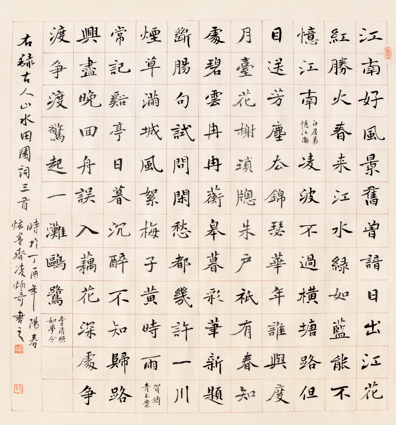 江南好風景舊曾諳日出江花
紅勝火春来江水綠如藍能不
憶江南
白居易
憶江南
凌波不過橫塘路但
目送芳塵去錦瑟華年誰與度
月臺花榭瑣牕朱戶祇有春知
處碧雲冉冉蘅皋暮彩筆新題
斷腸句試問閑愁都幾許一川
煙草滿城風絮梅子黃時雨
賀鑄
青玉案
常記谿亭日暮沉醉不知歸路
興盡晚回舟誤入藕花深處爭
渡爭渡驚起一灘鷗鷺
李清照
如夢令
右録古人山水田園詞三首
時於丁酉年陽春
炫墨齋凌炳奇書之